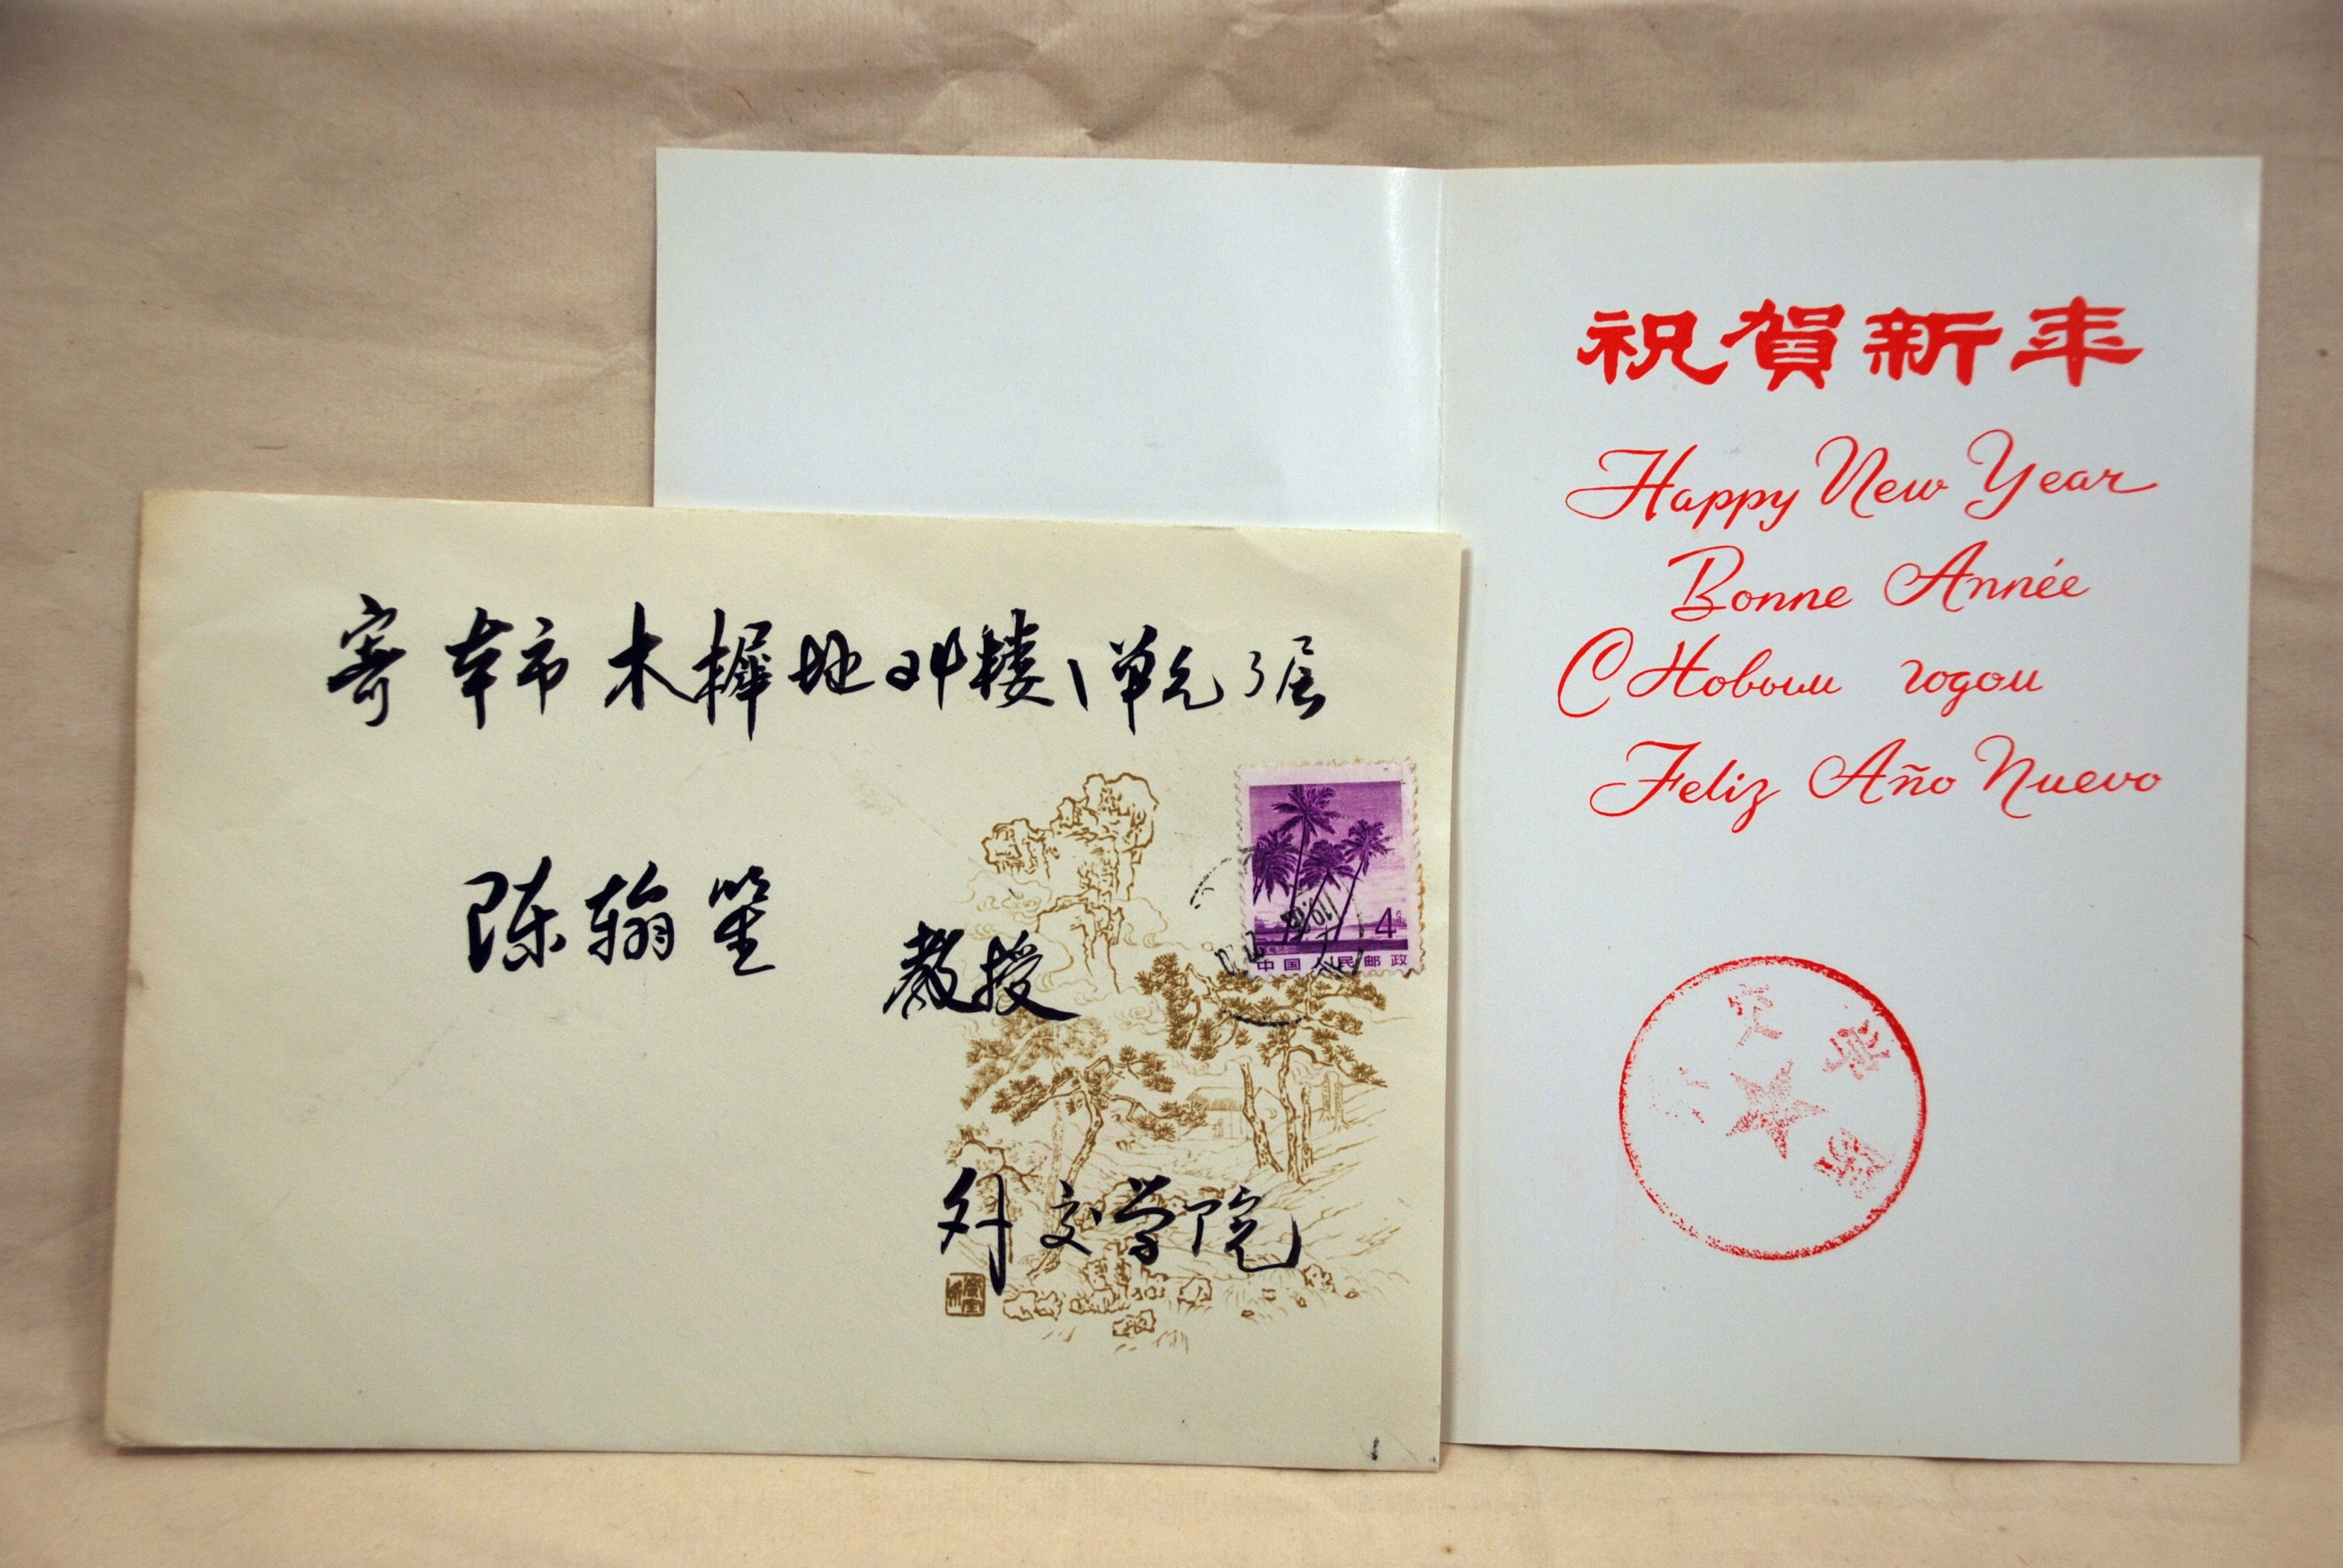 寄本市木樨地24楼1单元3层
陈翰笙
教授
外交学院
4
中国人民邮政
祝賀新年
Happy New Year
Bonne Année
С Новым годом
Feliz Año Nuevo
外交学院